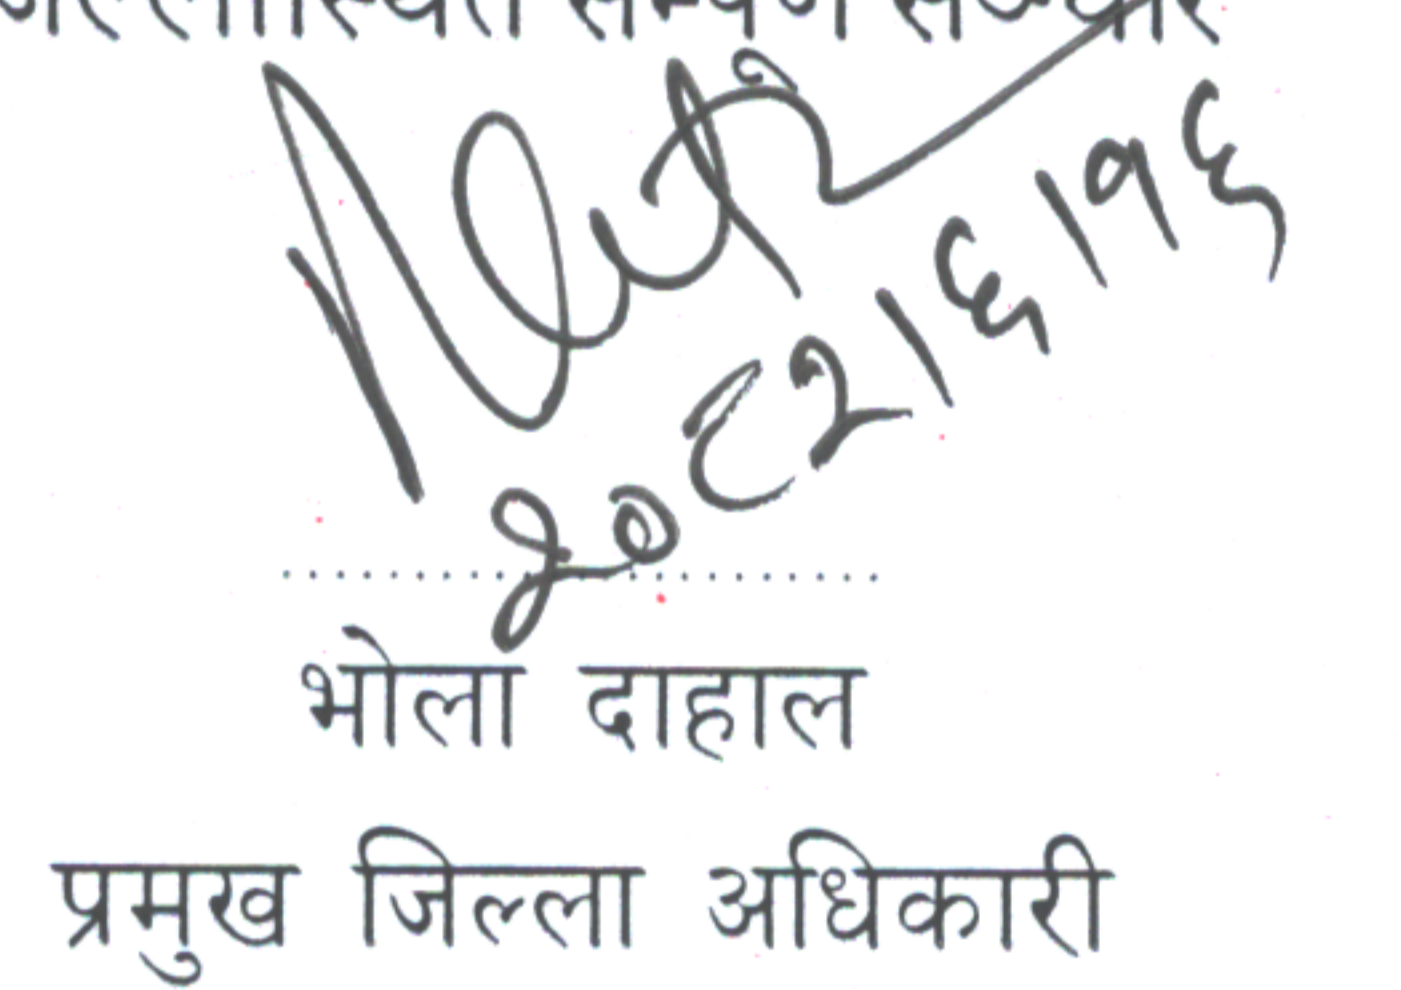 २०८२।६।१६
भोला दाहाल
प्रमुख जिल्ला अधिकारी